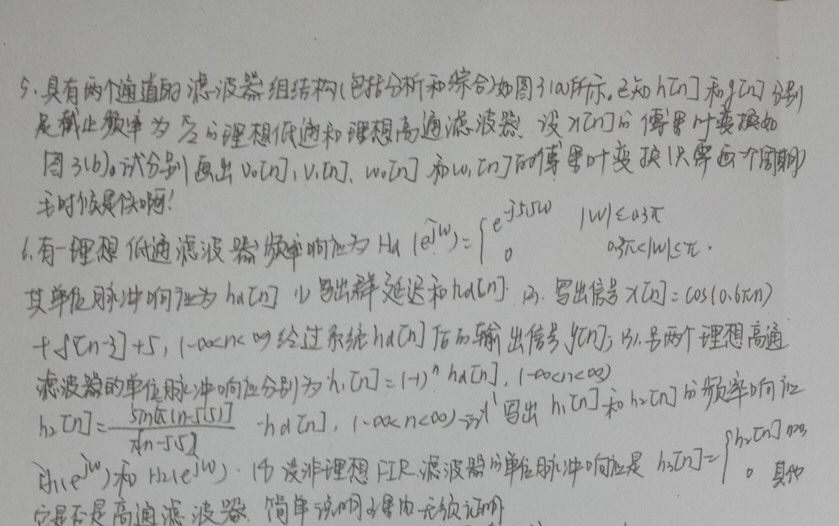 5.具有两个通道的滤波器组结构(包括分析和综合)如图3(a)所示。已知h[n]和g[n]分别
是截止频率为π/2的理想低通和理想高通滤波器 设x[n]的傅里叶变换如
图3(b)。试分别画出v₀[n],v₁[n]、w₀[n]和w₁[n]的傅里叶变换(只需画一个周期)
6.有一理想低通滤波器频率响应为Hd(e^{jω})={e^{-j5.5ω} |ω|≤0.3π
0 0.3π<|ω|≤π.
其单位脉冲响应为hd[n] (1)写出群延迟和hd[n]. (2).写出信号x[n]=cos(0.6πn)
+δ[n-3]+5,(-∞<n<∞)经过系统hd[n]后的输出信号y[n];(3).另两个理想高通
滤波器的单位脉冲响应分别为h₁[n]=(-1)ⁿhd[n],(-∞<n<∞)
h₂[n]=sin[π(n-5.5)]/π[n-5.5] -hd[n],(-∞<n<∞) 写出h₁[n]和h₂[n]的频率响应
H₁(e^{jω})和H₂(e^{jω}).(4)设非理想FIR滤波器的单位脉冲响应是h₃[n]={h₂[n]
0 其他
它是否是高通滤波器 简单说明理由无须证明